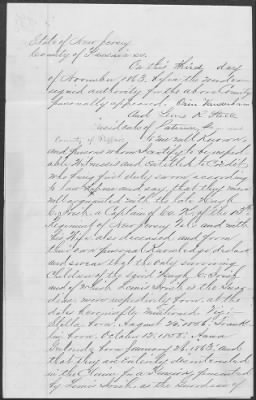 State of New Jersey
County of Passaic ss.
On this third day
of November 1863, before the under
signed authority for the above County
personally appeared
And Lewis R.
residents of Paterson
County of Passaic to me well known
and persons whom I certify to be respect
able Witnesses and entitled to Credit,
who being first duly sworn according
to law depose and say, that they were
well acquainted with the late Hugh
C. Irish a Captain of Co. K. of the 13th
Regiment of New Jersey Vols and with
his wife also deceased and from
their personal knowledge, declare
and swear that the only surviving
Children of the said Hugh C. Irish
and of whom Lewis Irish is the Guar
dian were respectively born at the
dates hereinafter mentioned Viz:—
Stella born August 26, 1856; Frank
lin born October 15, 1858; Anna
Gertrude born January 26, 1863; and
that they are entirely disinterested
in the Claim for a Pension presented
by Lewis Irish as the Guardian of